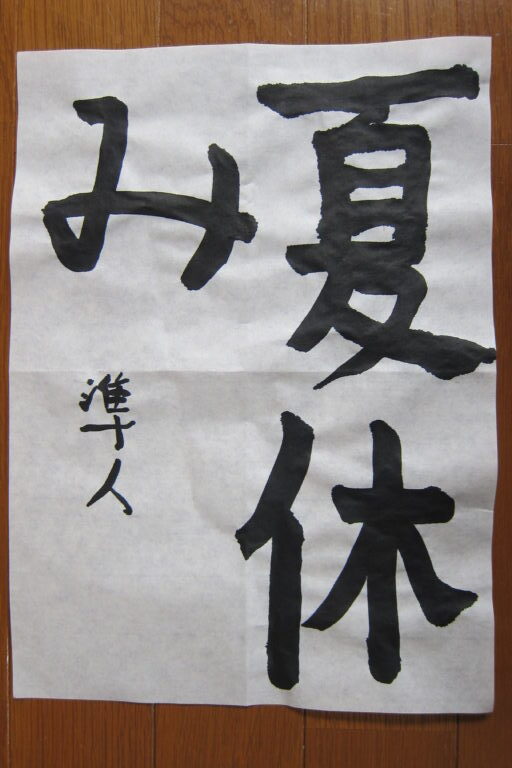 夏休
み
準人